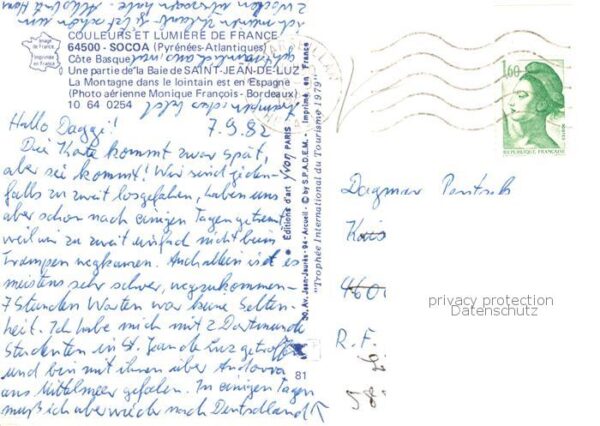 COULEURS ET LUMIÈRE DE FRANCE
64500 - SOCOA (Pyrénées-Atlantiques)
Côte Basque
Une partie de la Baie de SAINT-JEAN-DE-LUZ
La Montagne dans le lointain est en Espagne
(Photo aérienne Monique François - Bordeaux)
10 64 0254
Image de France
Imprimée en France
Hallo Daggi!
7.9.82
Die Karte kommt zwar spät,
aber sie kommt! Wir sind jeden-
falls zu zweit losgefahren, haben uns
aber schon nach einigen Tagen getrennt
weil wir zu zweit einfach nicht beim
Trampen wegkamen. Auch allein ist es
meistens sehr schwer, wegzukommen -
7 Stunden Warten war keine Selten-
heit. Ich habe mich mit 2 Dortmunder
Studenten in St. Jean de Luz getroffen
und bin mit ihnen über Andorra
ans Mittelmeer gefahren. In einigen Tagen
muß ich aber wieder nach Deutschland
Editions d'art yvon PARIS
30, Av. Jean-Jaurès - 94 - Arcueil - © by S.P.A.D.E.M. - Imprimé en France
"Trophée International du Tourisme 1979"
81
1,60
REPUBLIQUE FRANÇAISE
Dagmar
460
R.F.
privacy protection
Datenschutz